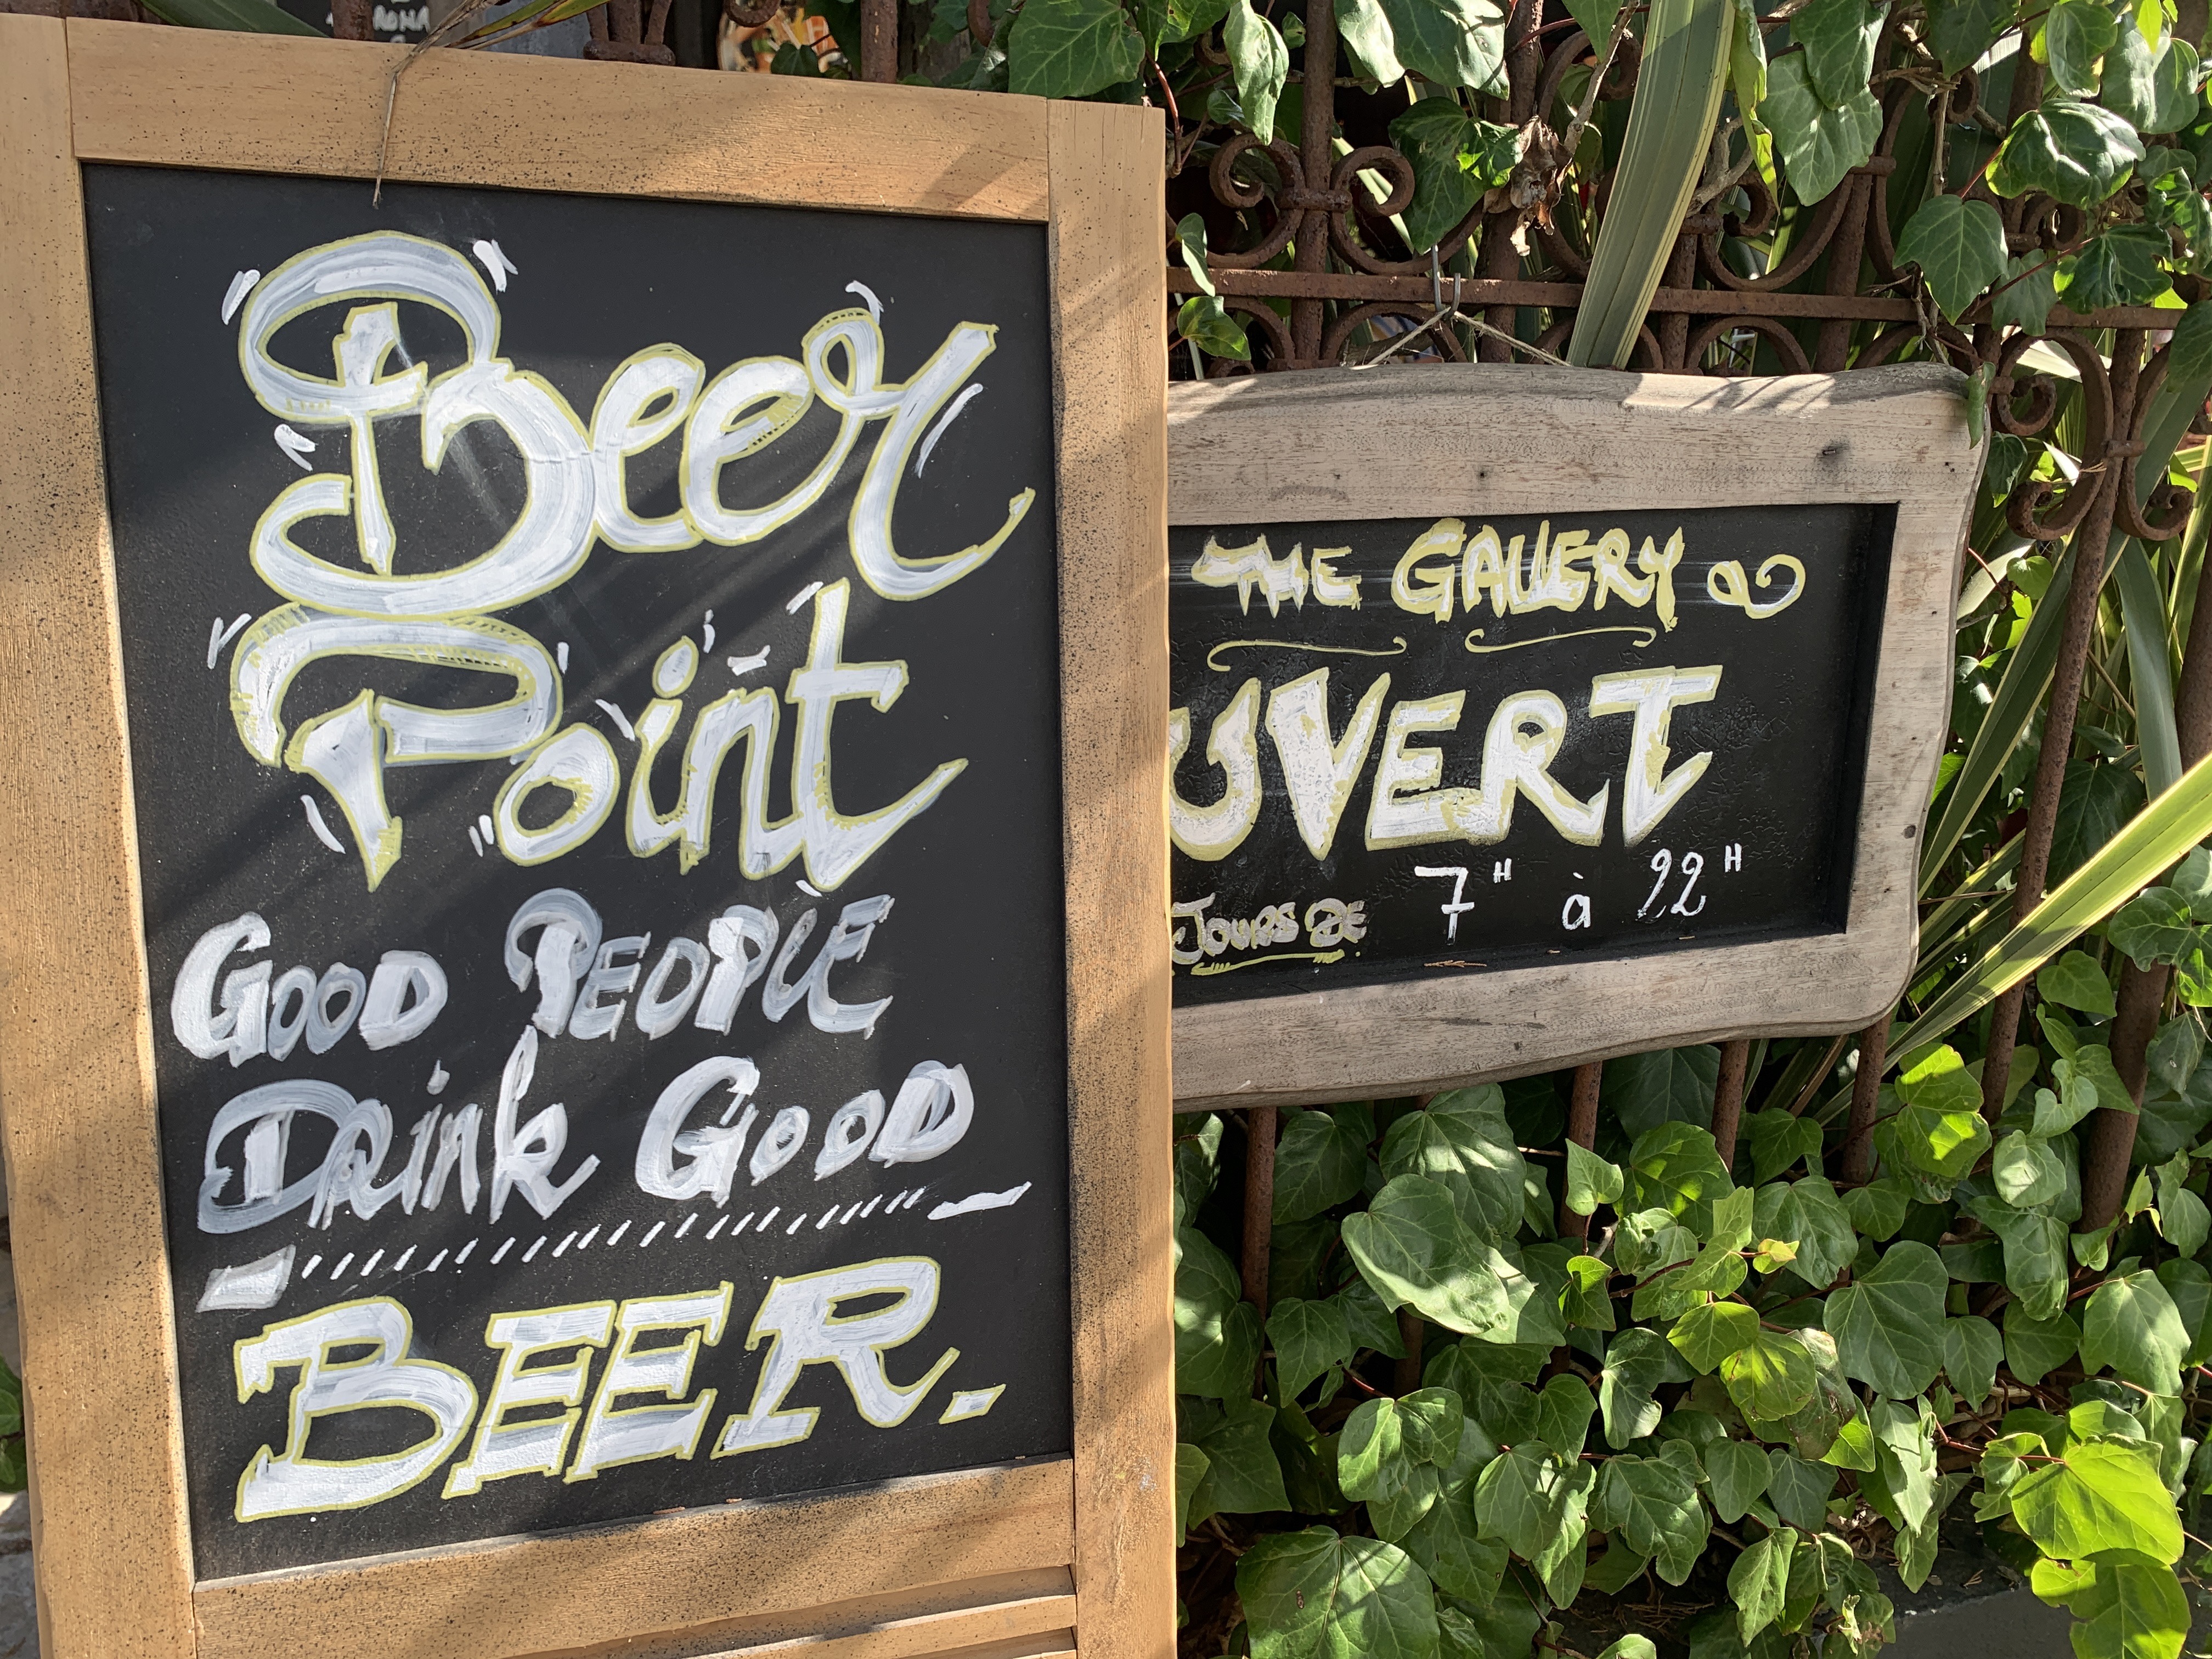 Beer
Point
GOOD PEOPLE
DRink GOOD
BEER.
THE GALLERY
UVERT
JOURS DE 7H à 22H